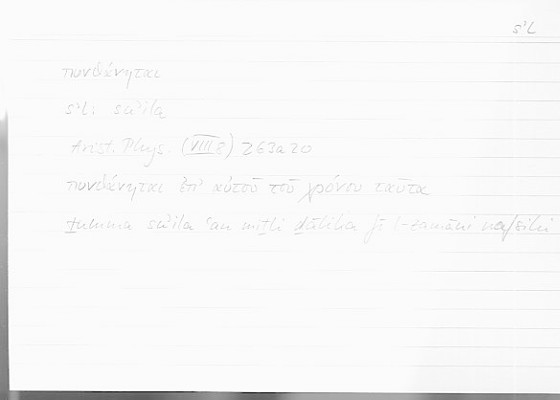 s²L
πυνθάνηται
s²l: su²ila
Arist. Phys. (VIII 8) 263a20
πυνθάνηται ἐπ' αὐτοῦ τοῦ χρόνου ταῦτα
ṯumma su²ila ʿan miṯli ḏālika fī l-zamāni nafsihi